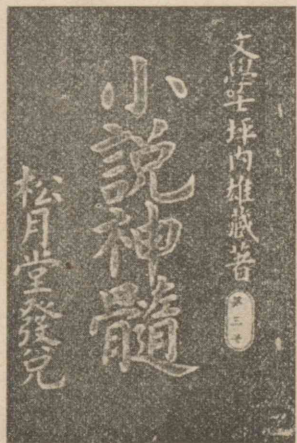 文學士坪内雄藏著
第三号
小説神髓
松月堂發兌